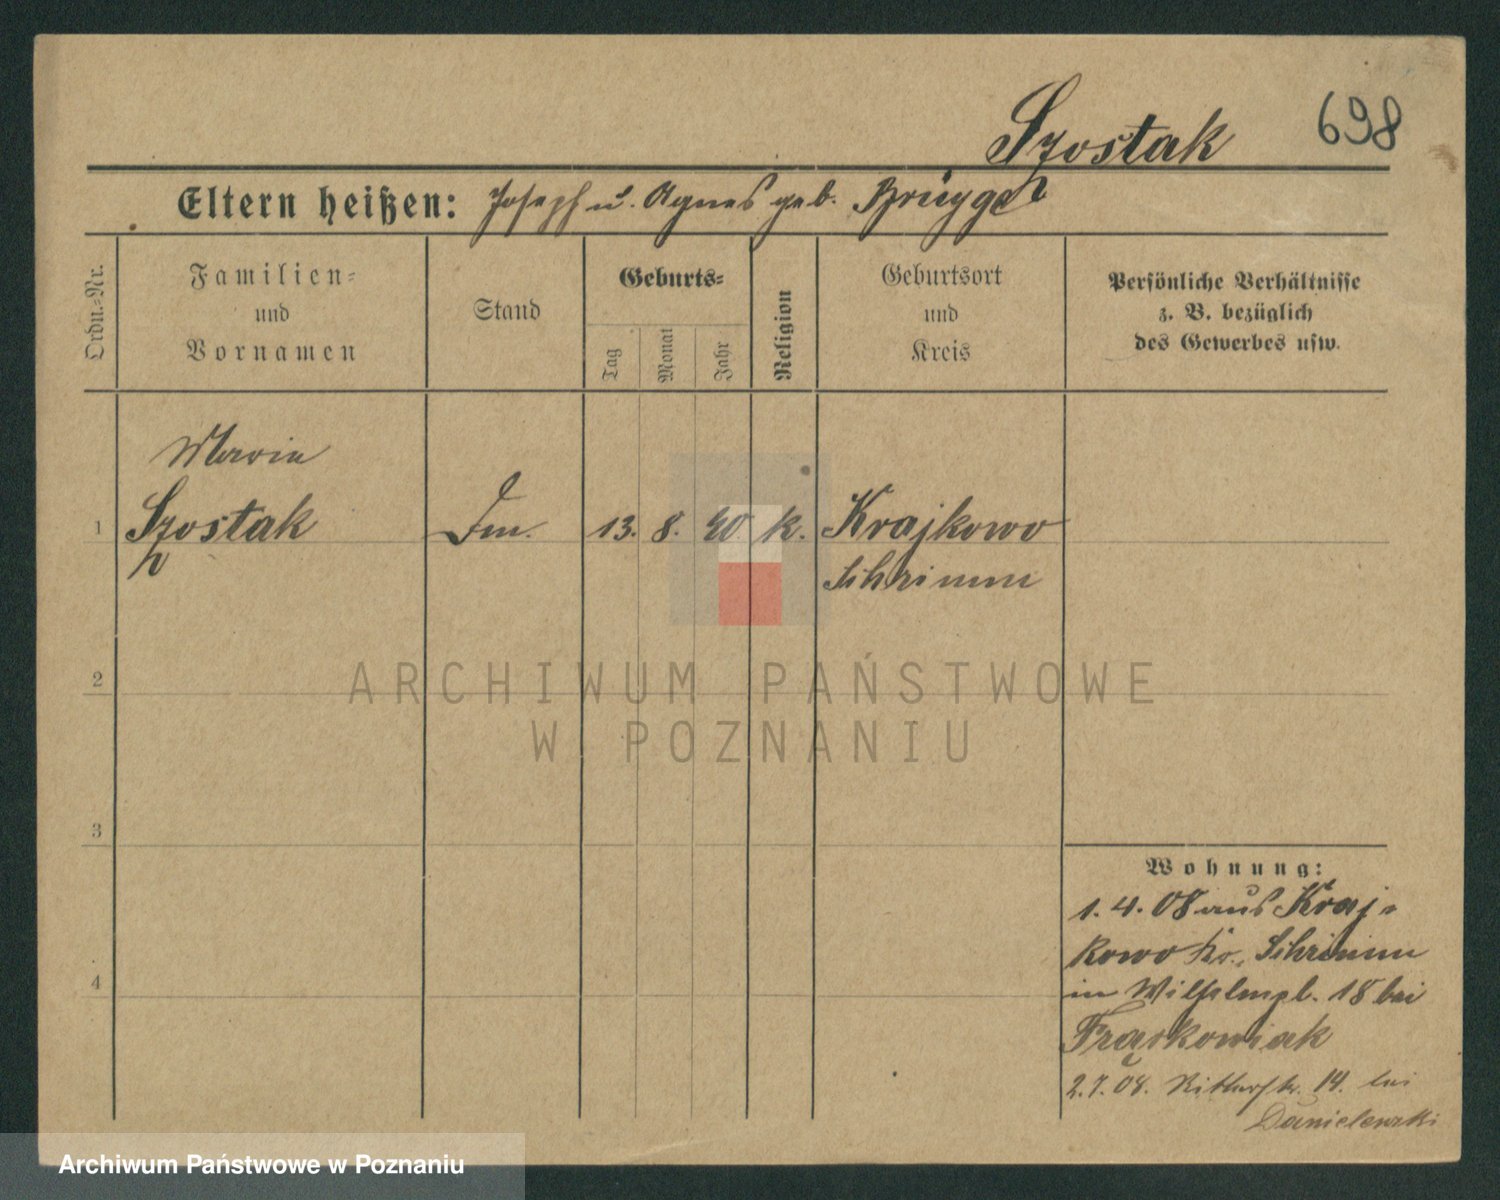 Szostak 698
Eltern heißen: Joseph u. Agnes geb. Brügge
Ordn.-Nr.
Familien-
und
Vornamen
Stand
Geburts-
Tag
Monat
Jahr
Religion
Geburtsort
und
Kreis
Persönliche Verhältnisse
z. B. bezüglich
des Gewerbes usw.
Maria
1 Szostak 13. 8. k. Krajkowo
Schrimm
2
ARCHIWUM PAŃSTWOWE
W POZNANIU
3
Wohnung:
1. 4. 08 aus Kraj-
kowo Kr. Schrimm
4
in Wilhelmpl. 18 bei
Frąckowiak
2.7.08. Ritterstr. 14. bei
Danielewski
Archiwum Państwowe w Poznaniu